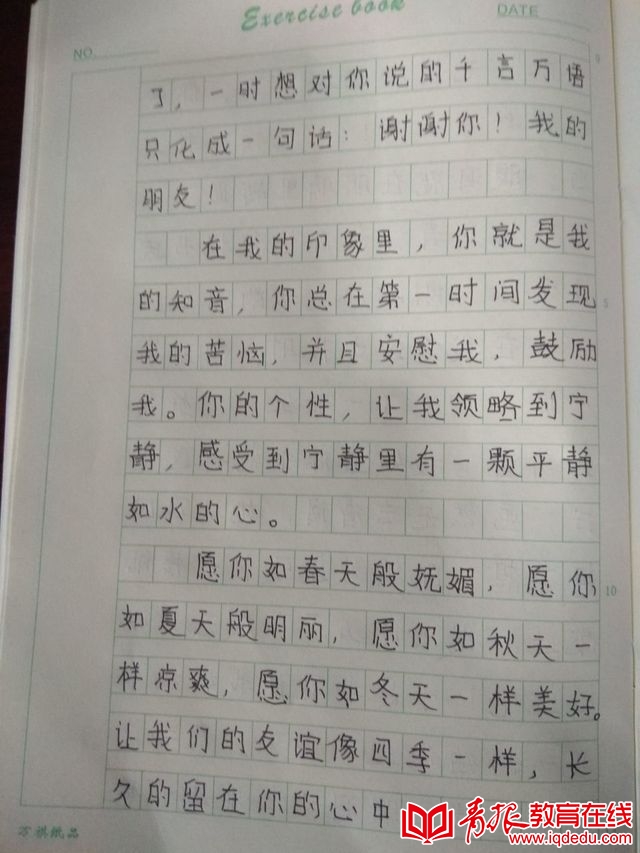 Exercise book
NO.
DATE
了，一时想对你说的千言万语
只化成一句话：谢谢你！我的
朋友！
在我的印象里，你就是我
的知音，你总在第一时间发现
5
我的苦恼，并且安慰我，鼓励
我。你的个性，让我领略到宁
静，感受到宁静里有一颗平静
如水的心。
愿你如春天般妩媚，愿你
10
如夏天般明丽，愿你如秋天一
样凉爽，愿你如冬天一样美好。
让我们的友谊像四季一样，长
久的留在你的心中
万祺纸品
青报教育在线
www.iqdedu.com